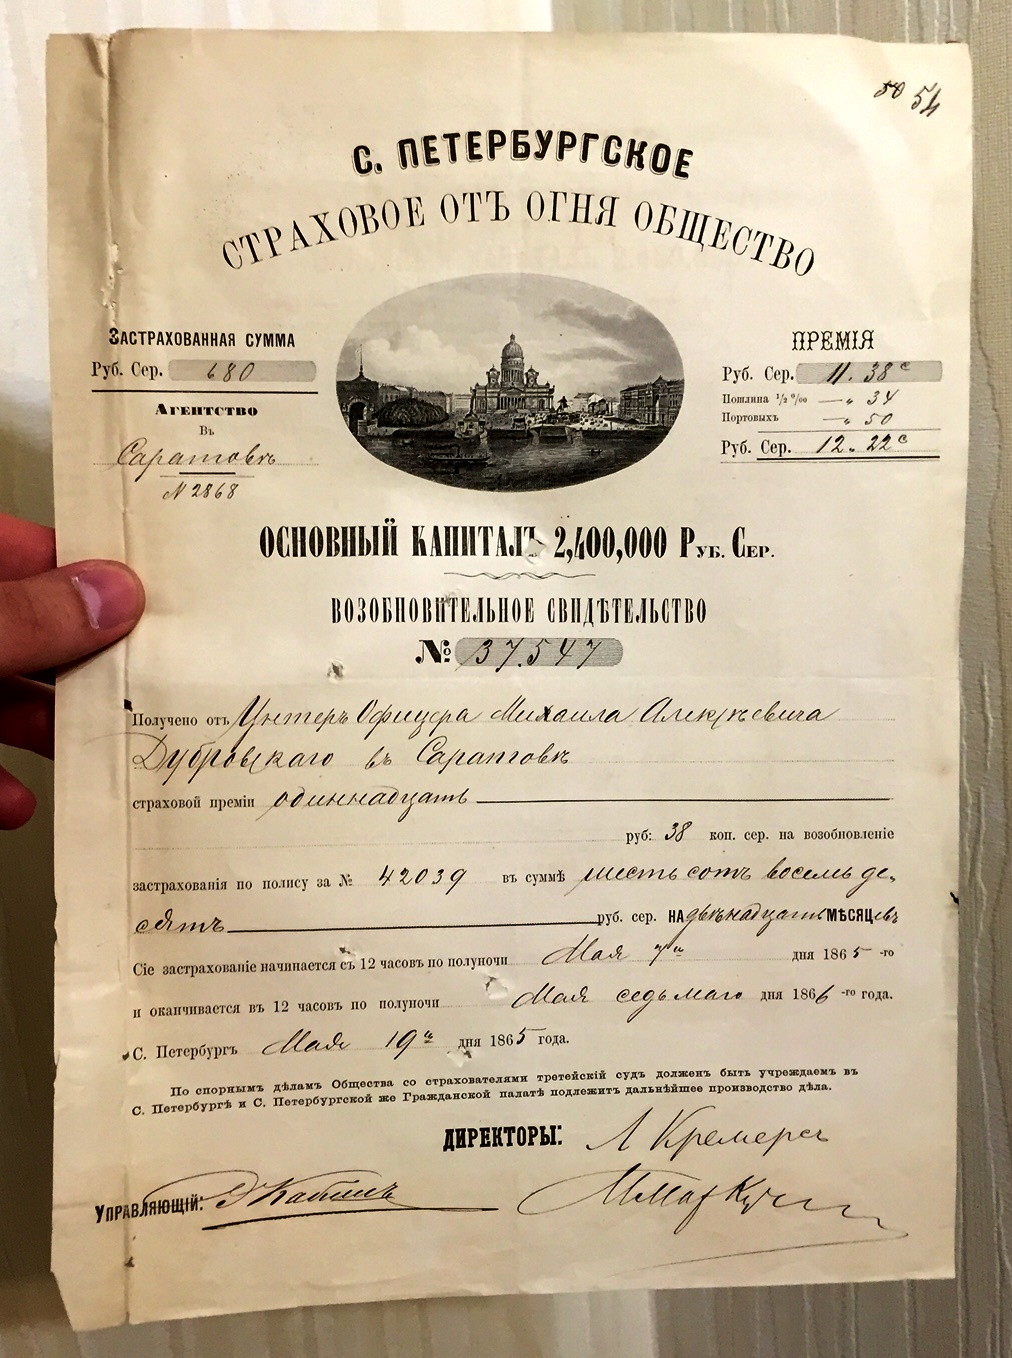 50 54
С. ПЕТЕРБУРГСКОЕ
СТРАХОВОЕ ОТЪ ОГНЯ ОБЩЕСТВО
ЗАСТРАХОВАННАЯ СУММА
Руб. Сер. 680
АГЕНТСТВО
ВЪ
Саратовѣ
N 2868
ПРЕМІЯ
Руб. Сер. 11. 38 с
Пошлина 1/2 0/00 — „ 34
Портовыхъ — „ 50
Руб. Сер. 12. 22 с
ОСНОВНЫЙ КАПИТАЛЪ 2,400,000 РУБ. СЕР.
ВОЗОБНОВИТЕЛЬНОЕ СВИДѢТЕЛЬСТВО
№ 37.547
Получено отъ Унтеръ Офицера Михаила Алексѣевича
Дубровскаго въ Саратовѣ
страховой преміи одиннадцать
руб: 38 коп. сер. на возобновленіе
застрахованія по полису за № 42039 въ суммѣ шесть сотъ восемь де-
сятъ руб. сер. НА двѣнадцать МѢСЯЦевъ
Сіе застрахованіе начинается съ 12 часовъ по полуночи Мая 7го дня 1865 -го
и оканчивается въ 12 часовъ по полуночи Мая седьмаго дня 1866 -го года.
С. Петербургъ Мая 19го дня 1865 года.
По спорнымъ дѣламъ Общества со страхователями третейскій судъ долженъ быть учреждаемъ въ
С. Петербургѣ и С. Петербургской же Гражданской палатѣ подлежитъ дальнѣйшее производство дѣла.
ДИРЕКТОРЫ: Л Кремеръ
УПРАВЛЯЮЩІЙ: